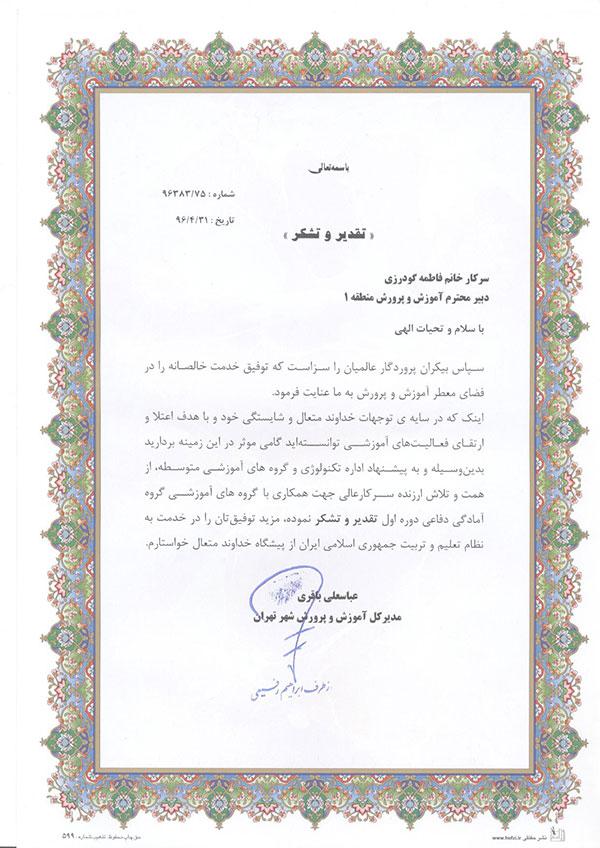 باسمه‌تعالی
شماره : ۹۶۳۸۳/۷۵
تاریخ : ۹۶/۴/۳۱
« تقدیر و تشکر »
سرکار خانم فاطمه گودرزی
دبیر محترم آموزش و پرورش منطقه ۱
با سلام و تحیات الهی
سپاس بیکران پروردگار عالمیان را سزاست که توفیق خدمت خالصانه را در
فضای معطر آموزش و پرورش به ما عنایت فرمود.
اینک که در سایه ی توجهات خداوند متعال و شایستگی خود و با هدف اعتلا و
ارتقای فعالیت‌های آموزشی توانسته‌اید گامی موثر در این زمینه بردارید
بدین‌وسیله و به پیشنهاد اداره تکنولوژی و گروه های آموزشی متوسطه، از
همت و تلاش ارزنده سرکارعالی جهت همکاری با گروه های آموزشی گروه
آمادگی دفاعی دوره اول تقدیر و تشکر نموده، مزید توفیق‌تان را در خدمت به
نظام تعلیم و تربیت جمهوری اسلامی ایران از پیشگاه خداوند متعال خواستارم.
عباسعلی باقری
مدیرکل آموزش و پرورش شهر تهران
از طرف ابراهیم رفیعی
نشر حافظی www.hafzi.ir
حق چاپ محفوظ: تذهیب شماره : ۵۹۹